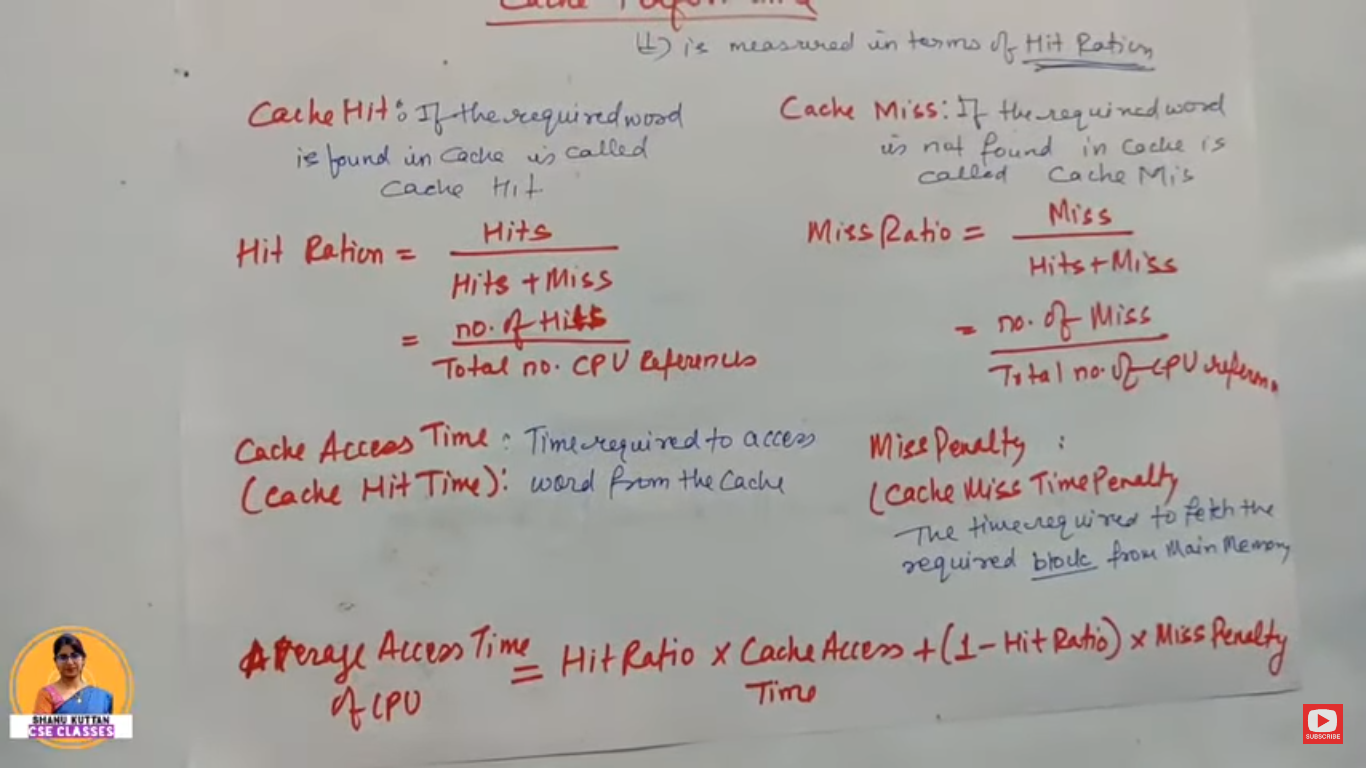 Cache
(↳) is measured in terms of Hit Ration
Cache Hit: If the required word
is found in Cache is called
Cache Hit
Cache Miss: If the required word
is not found in cache is
called Cache Mis
Hit Ration = Hits
Hits + Miss
= no. of Hits
Total no. CPU References
Miss Ratio = Miss
Hits + Miss
= no. of Miss
Total no. of CPU
Cache Access Time : Time required to access
(Cache Hit Time): word from the Cache
Miss Penalty :
(Cache Miss Time Penalty
The time required to fetch the
required block from Main Memory
Average Access Time = Hit Ratio × Cache Access + (1 - Hit Ratio) × Miss Penalty
of CPU Time
SHANU KUTTAN
CSE CLASSES
SUBSCRIBE